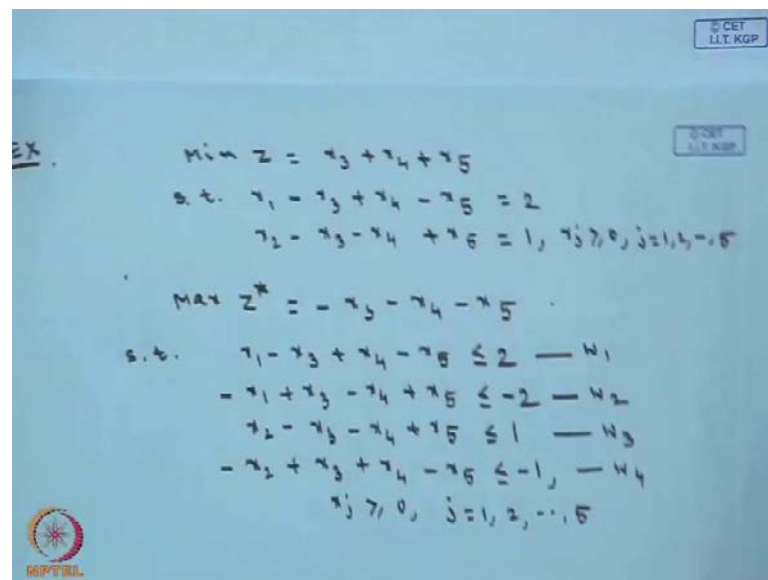 © CET
I.I.T. KGP
© CET
I.I.T. KGP
EX.
Min Z = x₃ + x₄ + x₅
s.t. x₁ - x₃ + x₄ - x₅ = 2
x₂ - x₃ - x₄ + x₅ = 1, xⱼ ≥ 0, j=1,2,-,5
Max Z* = - x₃ - x₄ - x₅ .
s.t. x₁ - x₃ + x₄ - x₅ ≤ 2 — W₁
- x₁ + x₃ - x₄ + x₅ ≤ -2 — W₂
x₂ - x₃ - x₄ + x₅ ≤ 1 — W₃
- x₂ + x₃ + x₄ - x₅ ≤ -1, — W₄
xⱼ ≥ 0, j=1, 2, .., 5
NPTEL